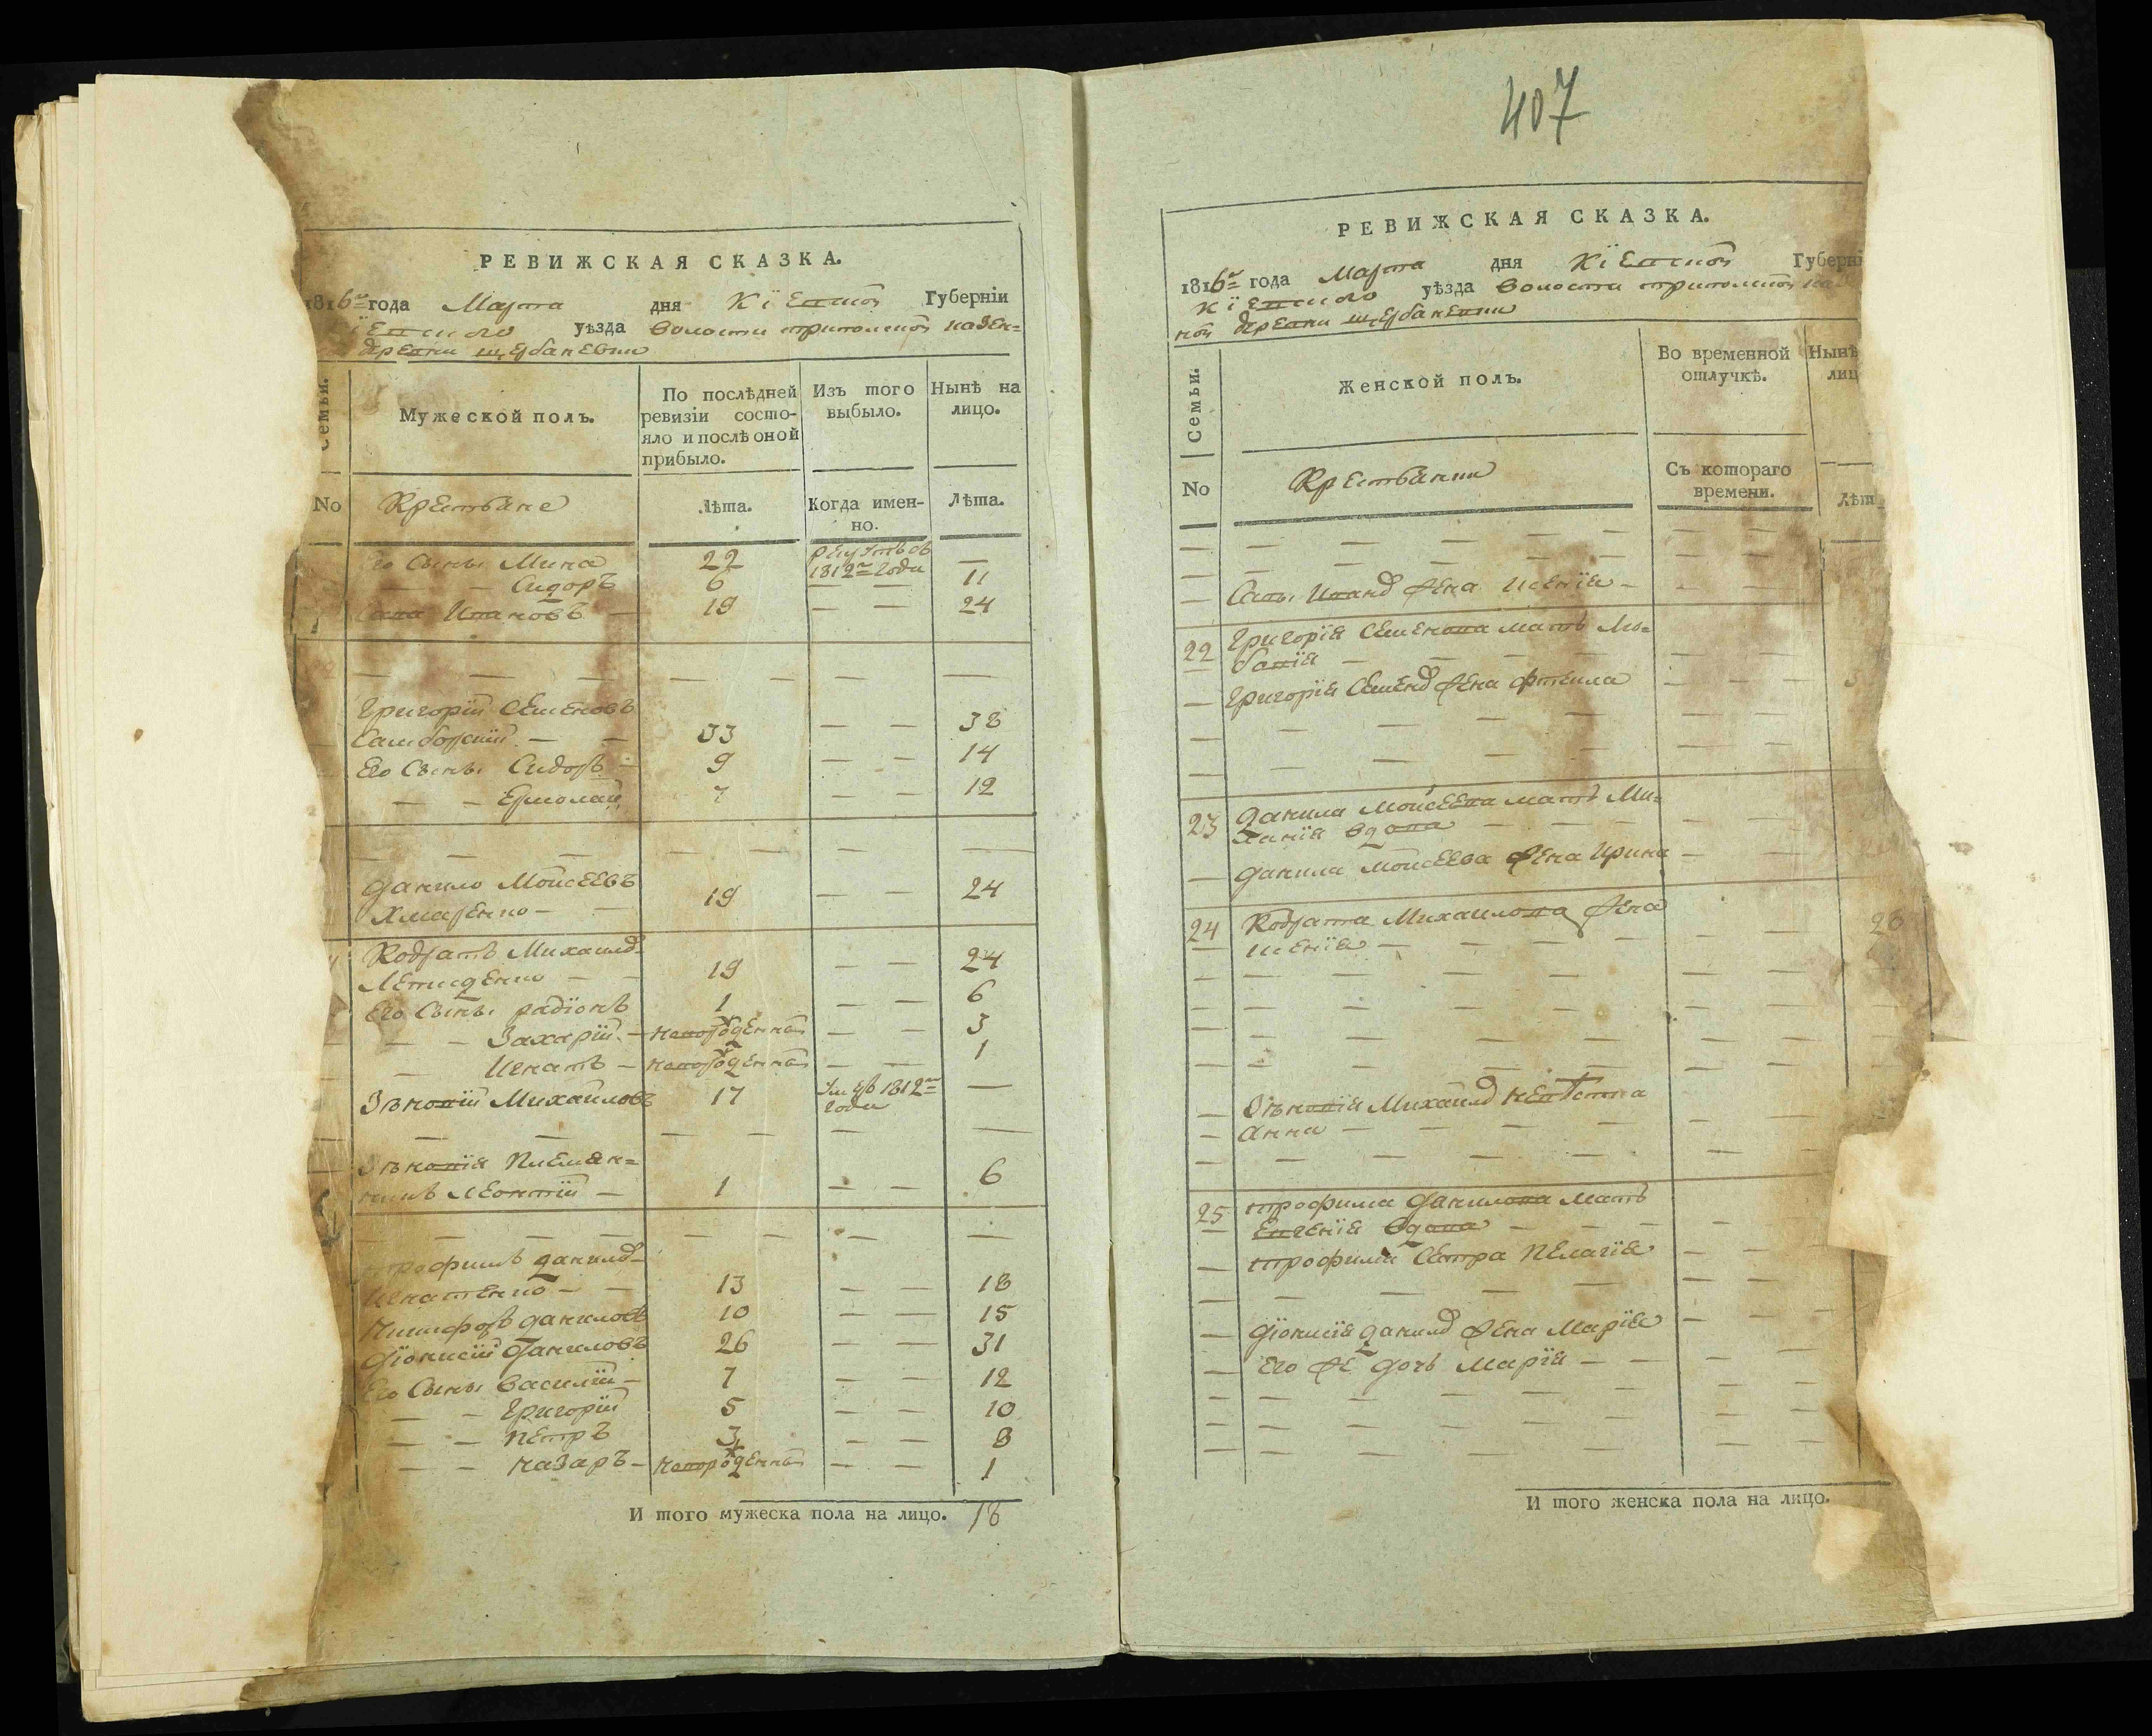 407
РЕВИЖСКАЯ СКАЗКА.
1816го года Марта дня Кїевской Губерніи
Кїевского уѣзда волости трипольской казен=
деревни щербаневки
Семьи.
Мужеской полъ.
По послѣдней ревизіи состо-
яло и послѣ оной
прибыло.
Изъ того
выбыло.
Нынѣ на
лицо.
No
Крестьяне
Лѣта.
Когда имен-
но.
Лѣта.
Его Сынъ Мина 22 рекрутъ въ 1812м годи —
— — Сидоръ 6 — — 11
Сава Ивановъ — 19 — — 24
Григорій Семеновъ
Самборскій — — 33 — — 38
Его Сынъ Сидоръ — 9 — — 14
— — Ермолай 7 — — 12
Данило Мойсеевъ
Хмаренко — — 19 — — 24
Кодратъ Михайлов
— — 19 — — 24
Его Сынъ радіонъ 1 — — 6
— — Захарій — новорожденный — — 3
— Игнатъ — новорожденный — — 1
Зѣновій Михайловъ 17 умеръ 1812м годи —
Зѣновія племян=
никъ Леонтій — 1 — — 6
трофимъ данилов
Игнатенко — — 13 — — 18
Никифоръ даниловъ 10 — — 15
Діонисій Даниловъ 26 — — 31
Его Сынъ Василій — 7 — — 12
— — Григорій 5 — — 10
— — Петръ 3 — — 8
— — Назаръ — новорожденный — — 1
И того мужеска пола на лицо. 18
РЕВИЖСКАЯ СКАЗКА.
1816го года Марта дня Кїевской Губерні
Кїевского уѣзда волости трипольской
ной деревни щербаневки
Семьи.
Женской полъ.
Во временной
отлучкѣ.
Нынѣ
лиц
No
Крестьянки
Съ котораго
времени.
Лѣт
Савы Иванов жена Ксенїя —
22 Григорїя Семенова мать Лю=
бовїя —
— Григорїя Семенов жена
23 Данила Мойсеева мать Ми=
ланїя вдова
— Данила Мойсеева жена Ирина —
24 Кодрата Михайлова жена
Ксенїя — 28
— Зѣновїя Михайлов невѣстка
— Анна —
25 трофима Данилова мать
Евгенїя вдова —
— трофима Сестра Пелагїя
— Дїонисїя данилов жена Марїя
— Его же дочь Марїя — —
И того женска пола на лицо.